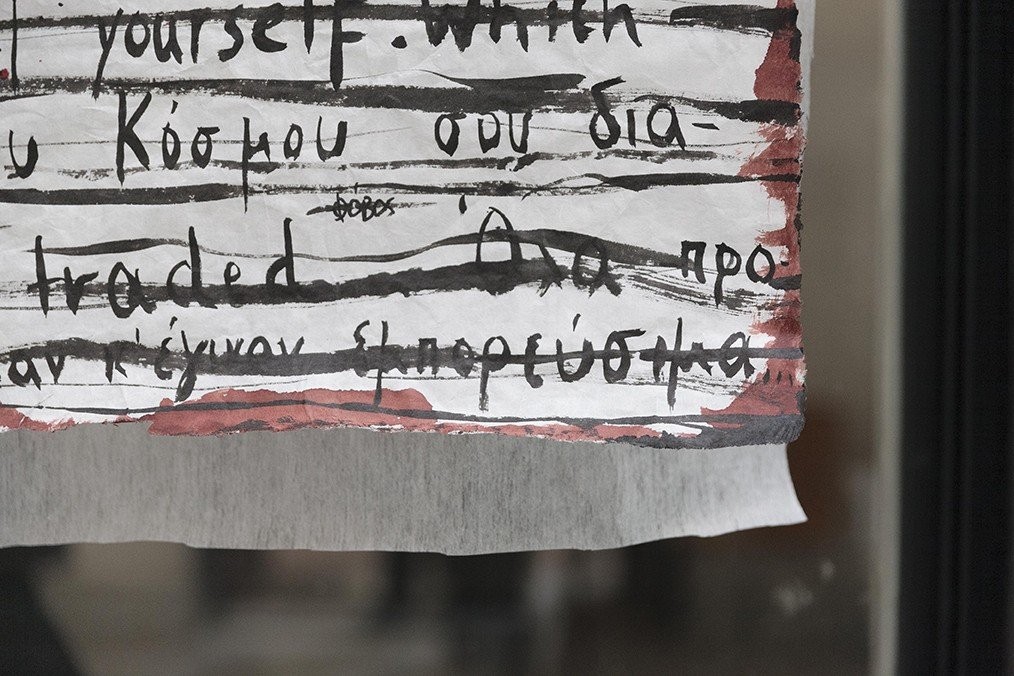 yourself. Which
υ Κόσμου σου δια-
φόβος
traded Όλα προ-
αν κ' έγιναν ἐμπορεύσημα...